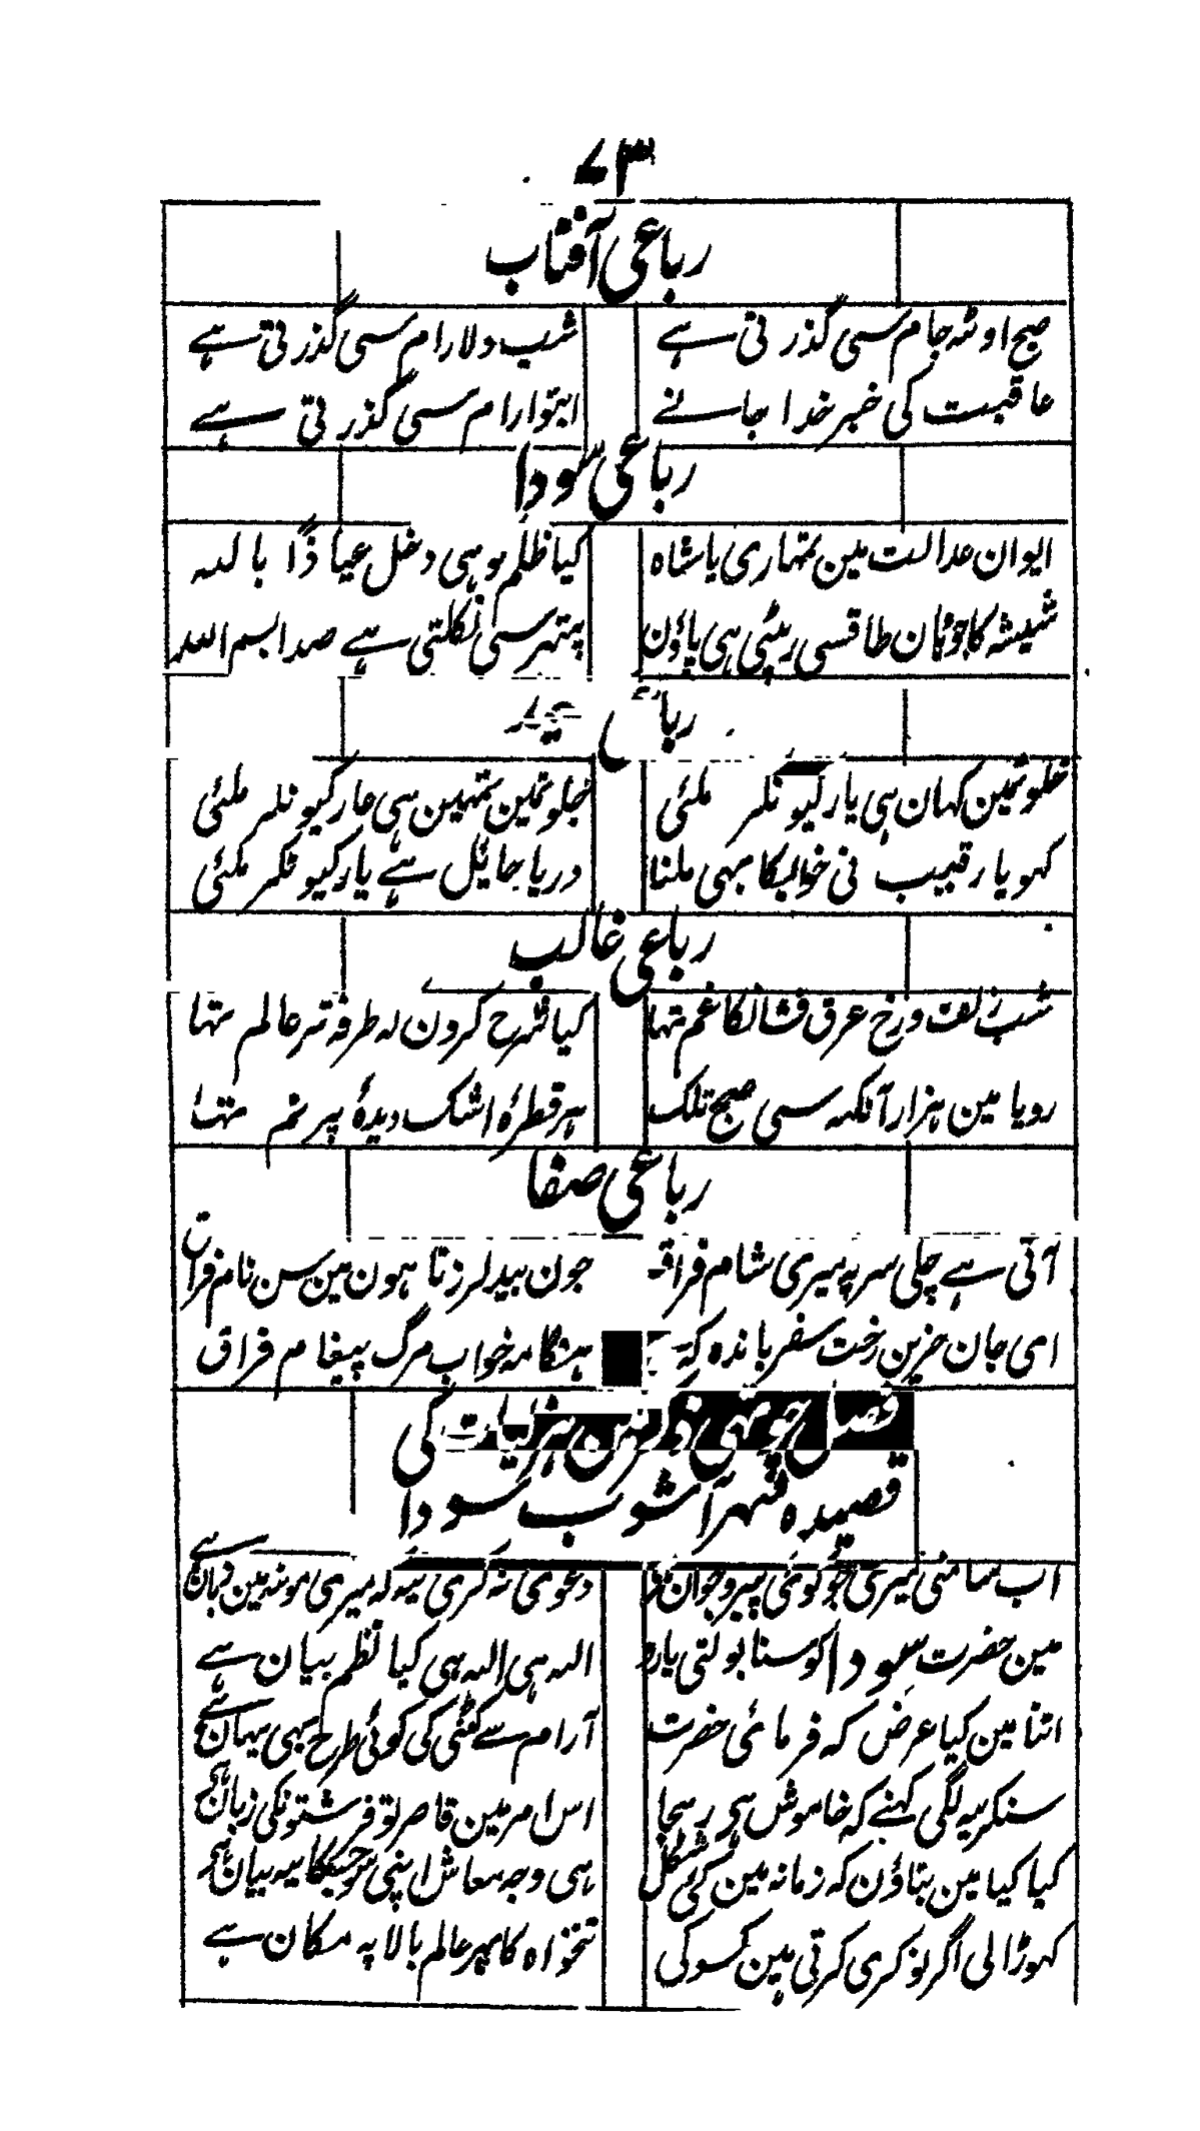 ۷۳
رباعی آفتاب
صبح اوٹھ جام سی گذرتی ہے شب دلارام سی گذرتی ہے
عاقبت کی خبر خدا جانے ابتوارام سی گذرتی ہے
رباعی سودا
ایوان عدالت مین تمہاری یاشاہ کیا ظلم ہوہی دخل عیاذًا باللہ
شیشہ کا جو وہان طاقسی رپٹی ہی پاؤن پتہرسی نکلتی ہے صدا بسم اللہ
رباعی
خلوتمین کہان ہی یار کیونکر ملئی جلوتمین تمہین ہی عار کیونکر ملئی
کہو یا رقیب نی خوابکا بہی ملنا دریا حائیل ہے یار کیونکر ملئی
رباعی غالب
شب زلف ورخ عرق فشانکا غم تہا کیا شرح کرون کہ طرفہ تر عالم تہا
رویا مین ہزار آنکہہ سی صبح تلک ہر قطرۂ اشک دیدۂ پرنم تہا
رباعی صفا
آتی ہے چلی سر پہ میری شام فراق جون بید لرزتا ہون مین سن نام فراق
امی جان حزین رخت سفر باندہ کہ ہنگامہ خواب مرگ پیغام فراق
فصل چوتہی ہزلیات کی
قصیدہ شہر آشوب سودا
اب سامنی میری جو کوئی پیر وجوان ہے دعوی نہ کری یہہ کہ میری مونہہ مین زبان ہے
مین حضرت سودا کو سنا بولتی یارو اللہ ہی اللہ ہی کیا نظم بیان ہے
اتنا مین کیا عرض کہ فرمائی حضرت آرام سے کٹنی کی کوئی طرح بہی یہان ہے
سنکر یہہ لگی کہنے کہ خاموش ہی رہجا اس امر مین قاصر تو فرشتونکی زبان ہے
کیا کیا مین بتاؤن کہ زمانہ مین کئی شکل ہی وجہ معاش اپنی سو جسکا یہہ بیان ہے
کہوڑا لی اگر نوکری کرتی ہین کسو کی تنخواہ کا پہر عالم بالا پہ مکان ہے